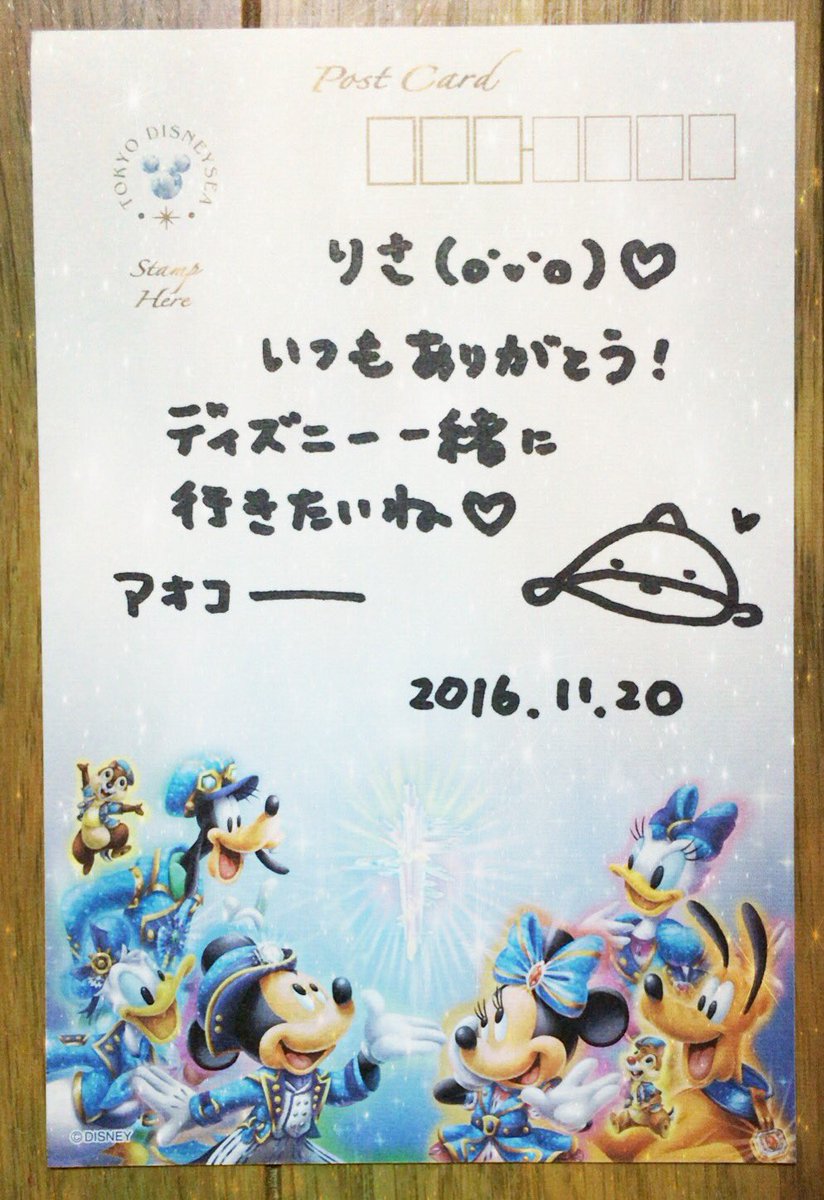 Post Card
TOKYO DISNEYSEA
Stamp
Here
りさ(o・v・o)♡
いつもありがとう!
ディズニー一緒に
行きたいね♡
アオコ——
2016.11.20
©DISNEY